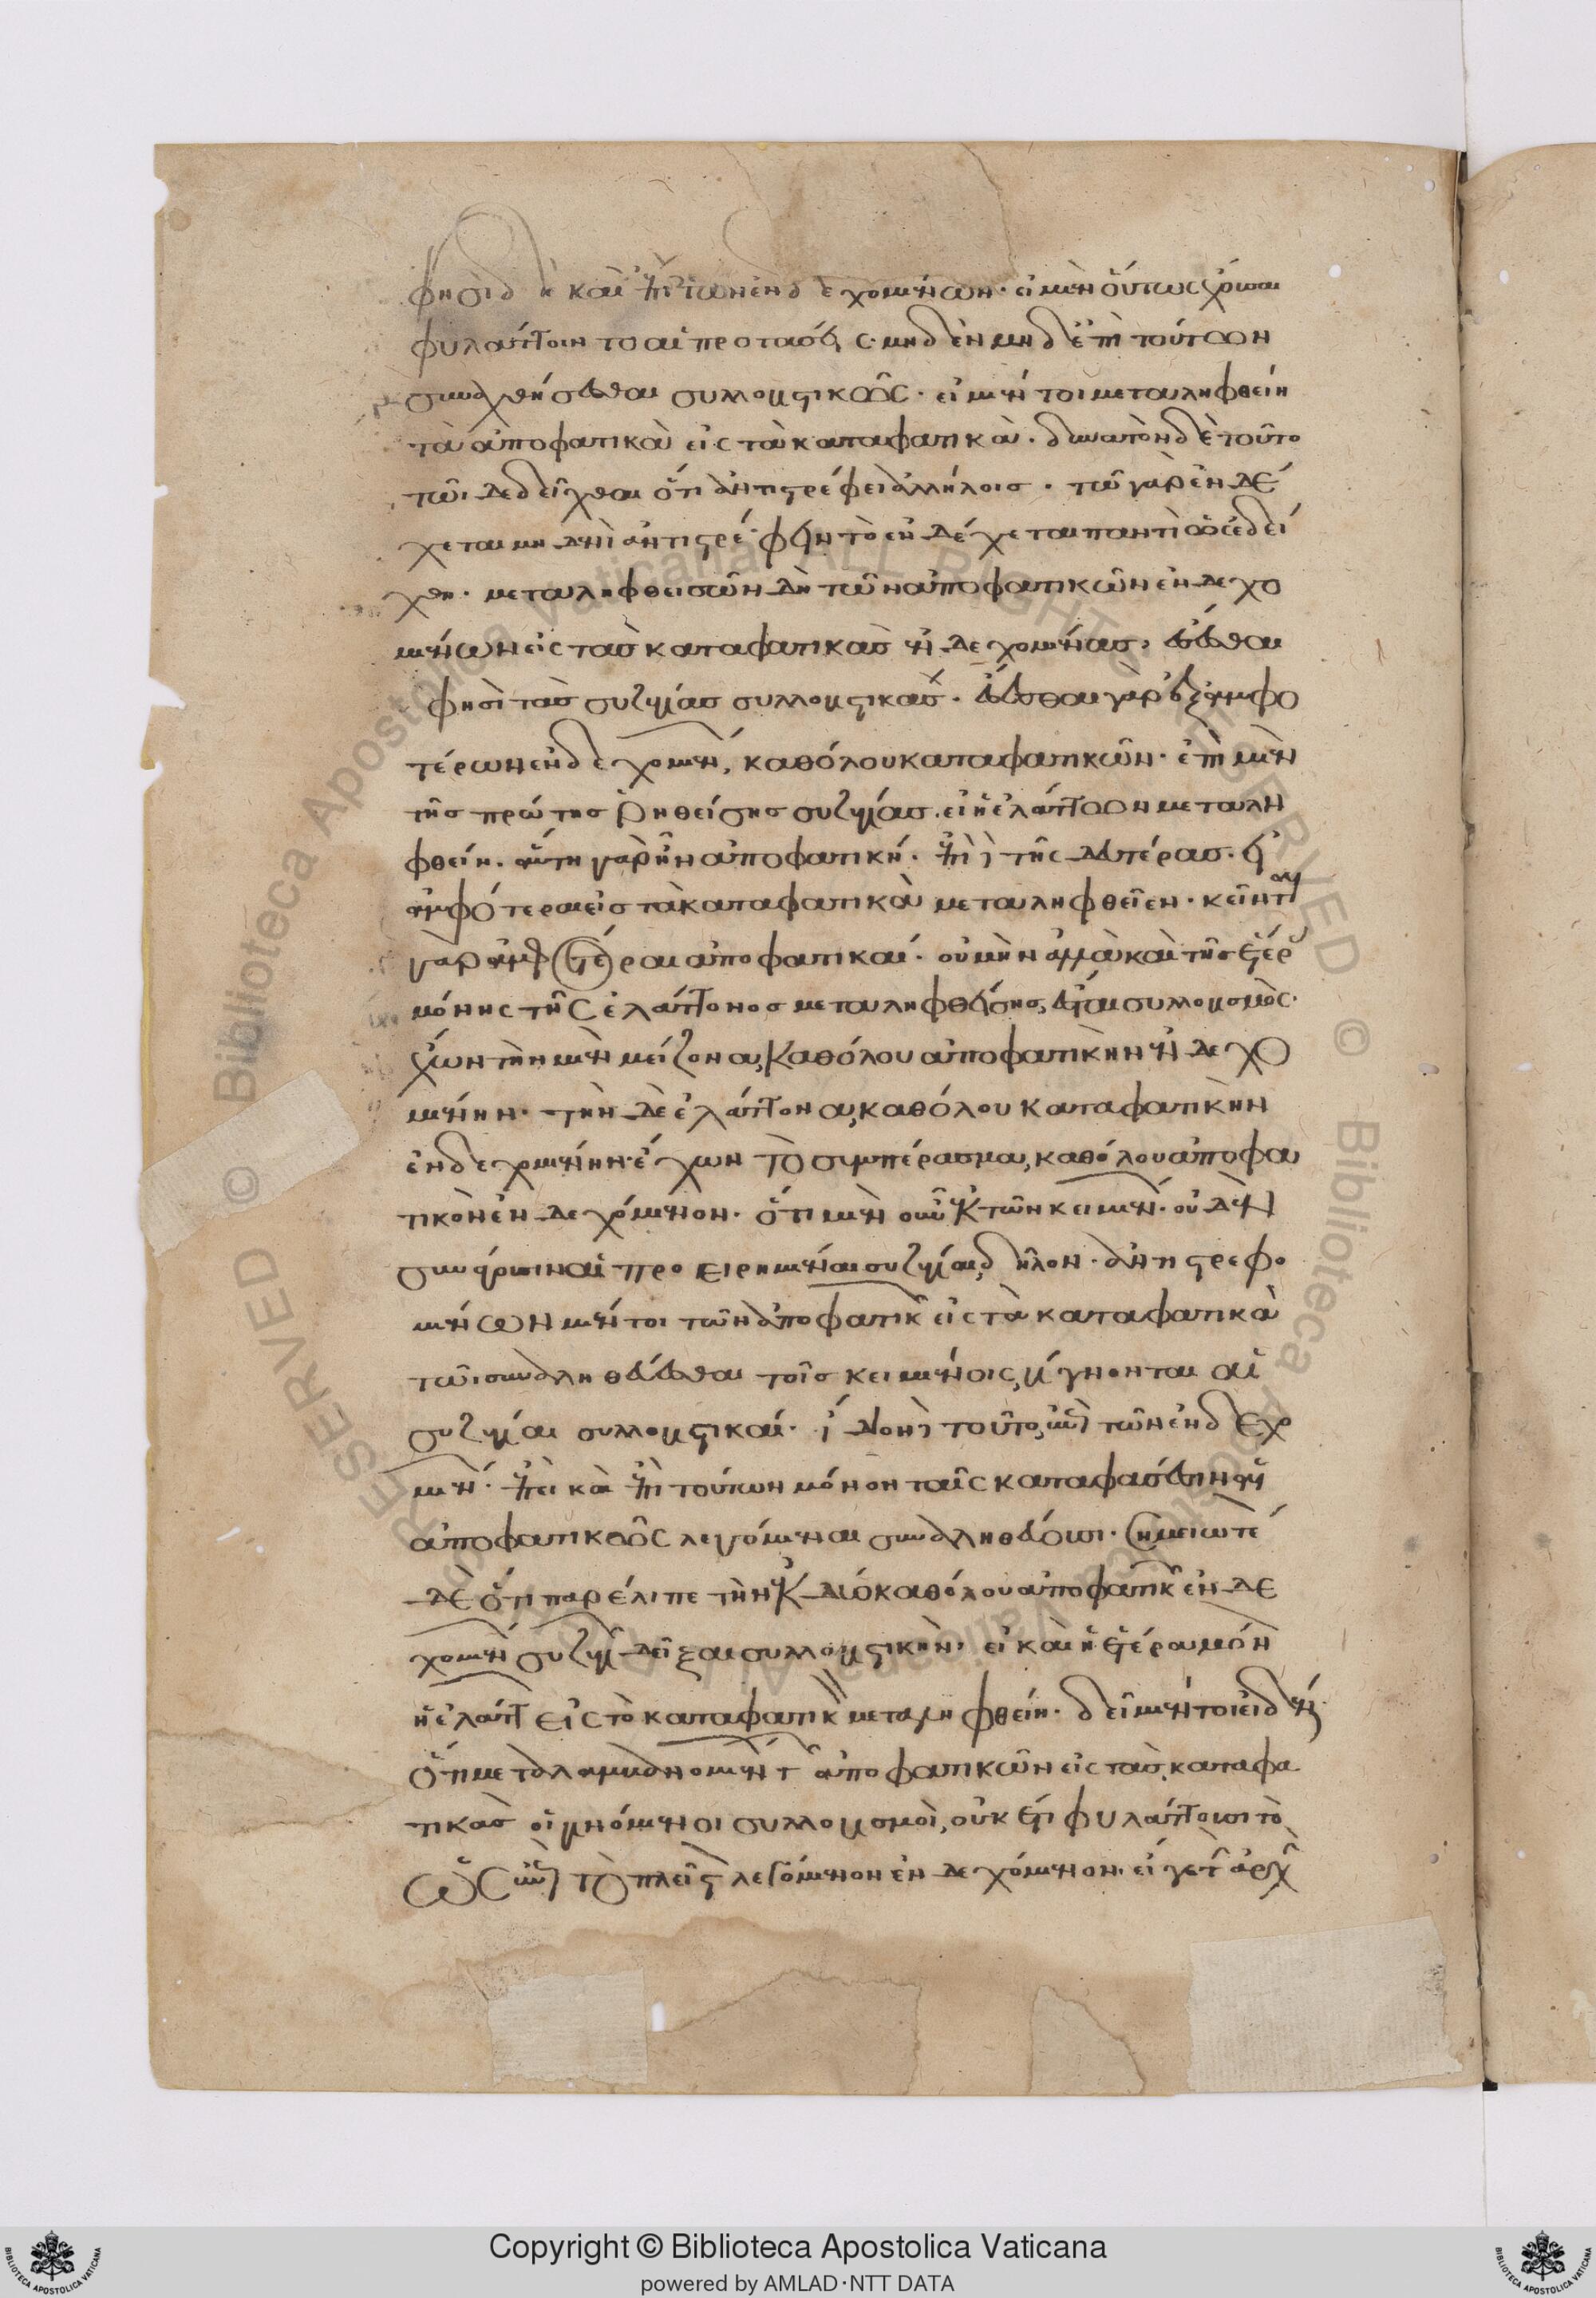 φησὶ δὴ καὶ ἐπὶ τῶν ἐνδεχομένων· εἰ μὲν οὕτως ἔχουσαι
φυλάττοιντο αἱ προτάσεις· μηδὲν μηδ' ἐπὶ τούτων
συναχθήσεσθαι συλλογιστικῶς· εἰ μέντοι μεταληφθείη
τὰ ἀποφατικὰ εἰς τὰ καταφατικά· δυνατὸν δὲ τοῦτο
τῶι δεδεῖχθαι ὅτι ἀντιστρέφει ἀλλήλοις· τῶ γὰρ ἐνδέ
χεται μηδενὶ ἀντιστρέφειν τὸ ἐνδέχεται παντὶ ὡς ἐδεί
χθη· μεταληφθεισῶν δὴ τῶν ἀποφατικῶν ἐνδεχο
μένων εἰς τὰς καταφατικὰς ἐνδεχομένας, ἔσεσθαι
φησὶ τὰς συζυγίας συλλογιστικάς· ἔσεσθαι γὰρ ἐξ ἀμφο
τέρων ἐνδεχομέν, καθόλου καταφατικῶν· ἐπὶ μὲν
τῆς πρώτης ῥηθείσης συζυγίας· εἰ ἡ ἐλάττων μεταλη
φθείη· αὕτη γὰρ ἦν ἀποφατική· ἐπὶ δὲ τῆς δευτέρας· εἰ
ἀμφότεραι εἰς τὰ καταφατικὰ μεταληφθεῖεν· κεῖνται
γὰρ ἀμφότεραι ἀποφατικαί· οὐ μὴν ἀλλὰ καὶ τῆς ἑτέρας
μόνης τῆς ἐλάττονος μεταληφθείσης, ἔσται συλλογισμός·
ἔχων τὴν μὲν μείζονα, καθόλου ἀποφατικὴν ἐνδεχο
μένην· τὴν δὲ ἐλάττονα, καθόλου καταφατικὴν
ἐνδεχομένην· ἔχων τὸ συμπέρασμα, καθόλου ἀποφα
τικὸν ἐνδεχόμενον· ὅτι μὲν οὖν ἐκ τῶν κειμέν· οὐδὲν
συνάγουσιν αἱ προειρημέναι συζυγίαι, δῆλον· ἀντιστρεφο
μένων μέντοι τῶν ἀποφατικ εἰς τὰ καταφατικὰ
τῶι συναληθεύεσθαι τοῖς κειμένοις, γίγνονται αἱ
συζυγίαι συλλογιστικαί· ἴδιον δὲ τοῦτο, ἐπὶ τῶν ἐνδεχο
μέν· ἐπεὶ καὶ ἐπὶ τούτων μόνον ταῖς καταφάσεσιν αἱ
ἀποφατικῶς λεγόμεναι συναληθεύουσι· σημειωτέ
δὲ ὅτι παρέλιπε τὴν ἐκ δύο καθόλου ἀποφατικ ἐνδε
χομέν συζυγ δεῖξαι συλλογιστικήν, εἰ καὶ ἡ ἑτέρα μόν
ἡ ἐλάττ εἰς τὸ καταφατικ μεταληφθείη· δεῖ μέντοι εἰδέν
ὅτι μεταλαμβανομέν τ ἀποφατικῶν εἰς τὰς καταφα
τικὰς οἱ γινόμενοι συλλογισμοί, οὐκέτι φυλάττουσι τὸ
ὡς ἐπὶ τὸ πλεῖστ λεγόμενον ἐνδεχόμενον· εἴ γε τ ἀρχ